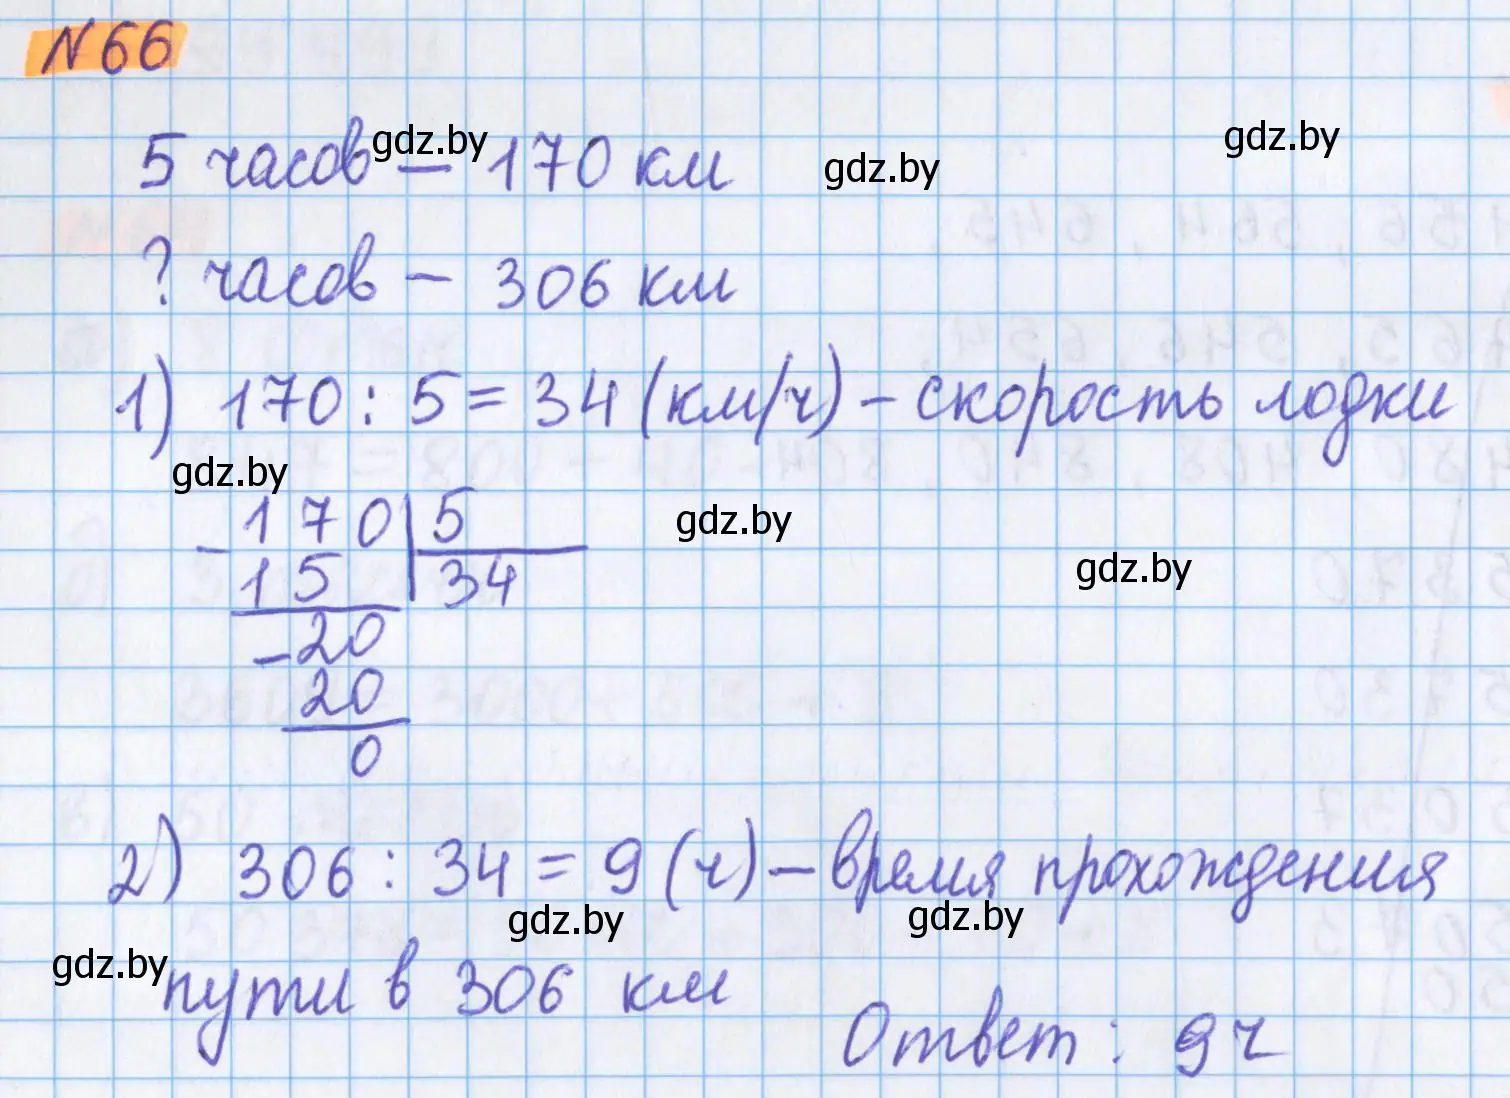 №66
5 часов — 170 км
gdz.by
gdz.by
gdz.by
? часов — 306 км
1) 170 : 5 = 34 (км/ч) – скорость лодки
gdz.by
170 5
gdz.by
– 15 34
gdz.by
– 20
20
0
2) 306 : 34 = 9 (ч) – время прохождения
gdz.by
gdz.by
gdz.by
пути в 306 км
Ответ : 9 ч